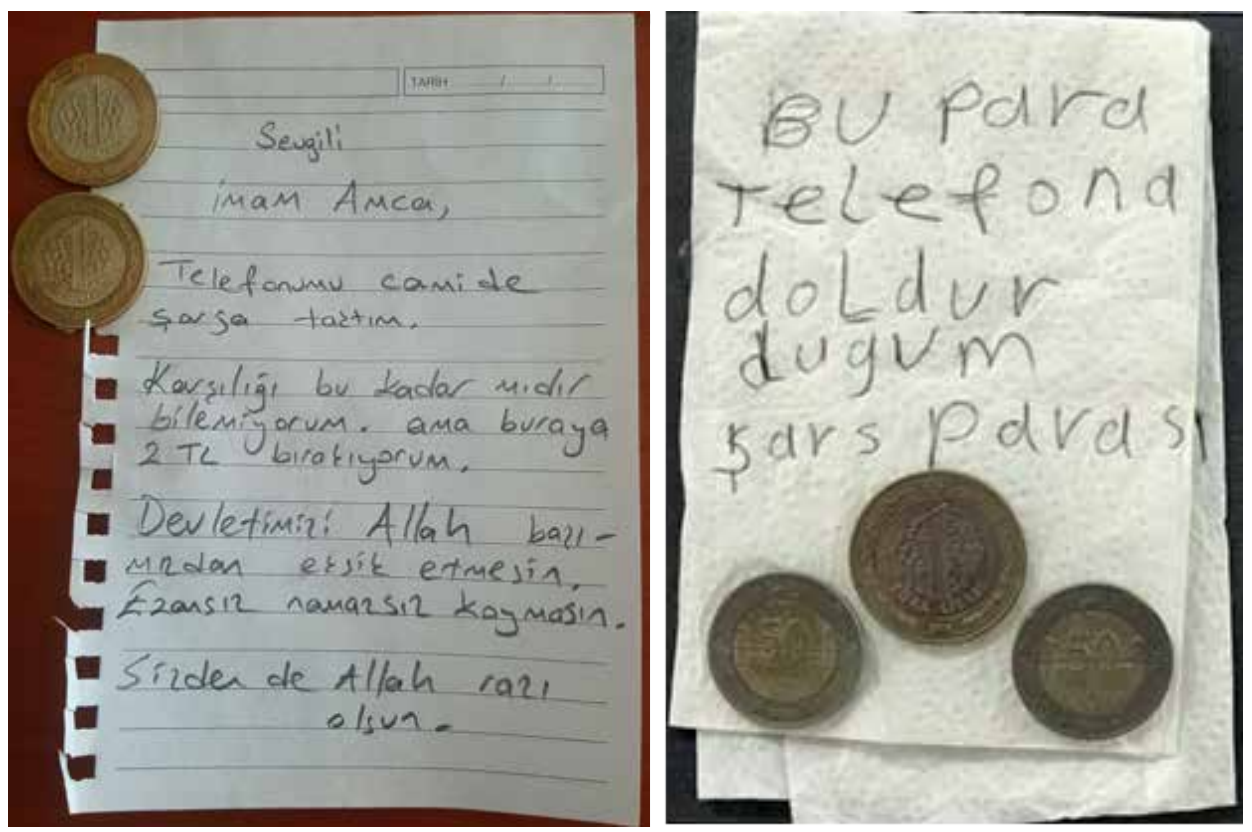 TARİH / /
Sevgili
imam Amca,
Telefonumu camide
şarşa taktım.
Karşılığı bu kadar mıdır
bilemiyorum. ama buraya
2 TL bırakıyorum.
Devletimizi Allah başı-
mızdan eksik etmesin.
Ezansız namazsız koymasın.
Sizden de Allah razı
olsun.
BU para
Telefona
doLdur
dugum
şars parası
1
50
50